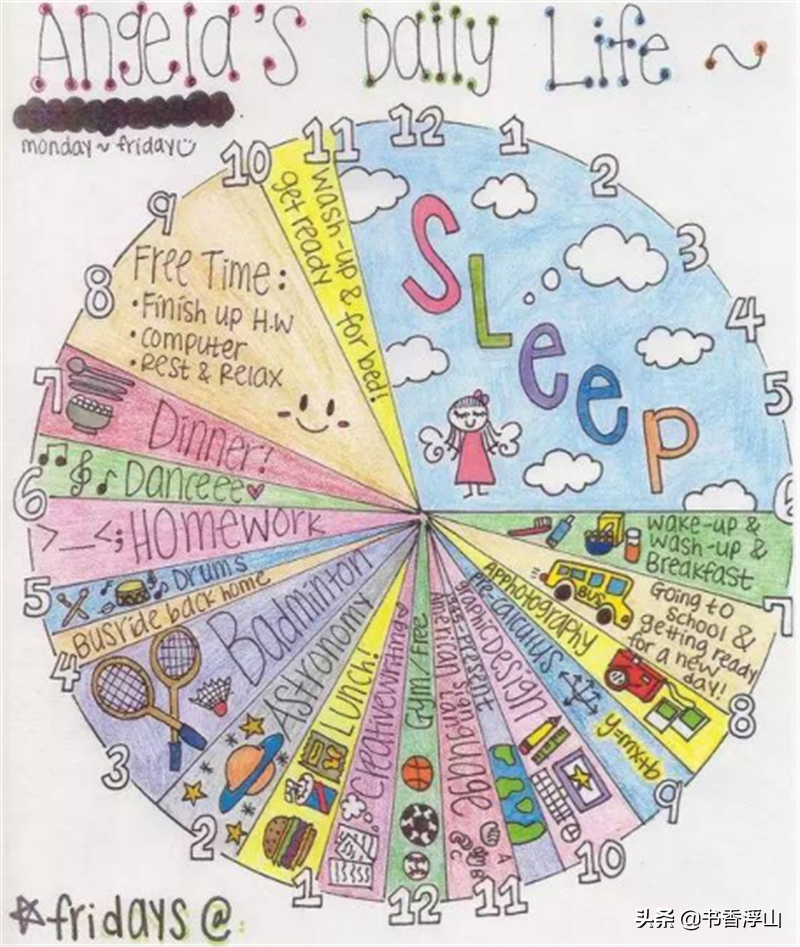 Angela's Daily Life ~
monday ~ friday
11
12
1
2
3
4
5
6
7
8
9
10
11
12
1
2
3
4
5
6
7
8
9
10
SLeeP
wake-up &
wash-up &
Breakfast
Going to
school &
getting ready
for a new
day!
BUS
AP Photography
Pre-calculus
y=mx+b
graphic design
American Sign Language
Gym/Free
creative writing
Lunch!
Astronomy
Badminton
Bus ride back home
Drums
Homework
>__<;
Danceee
Dinner!
Free Time:
• Finish up H.W
• computer
• Rest & Relax
wash-up &
get ready for bed!
☆fridays @
头条 @书香浮山